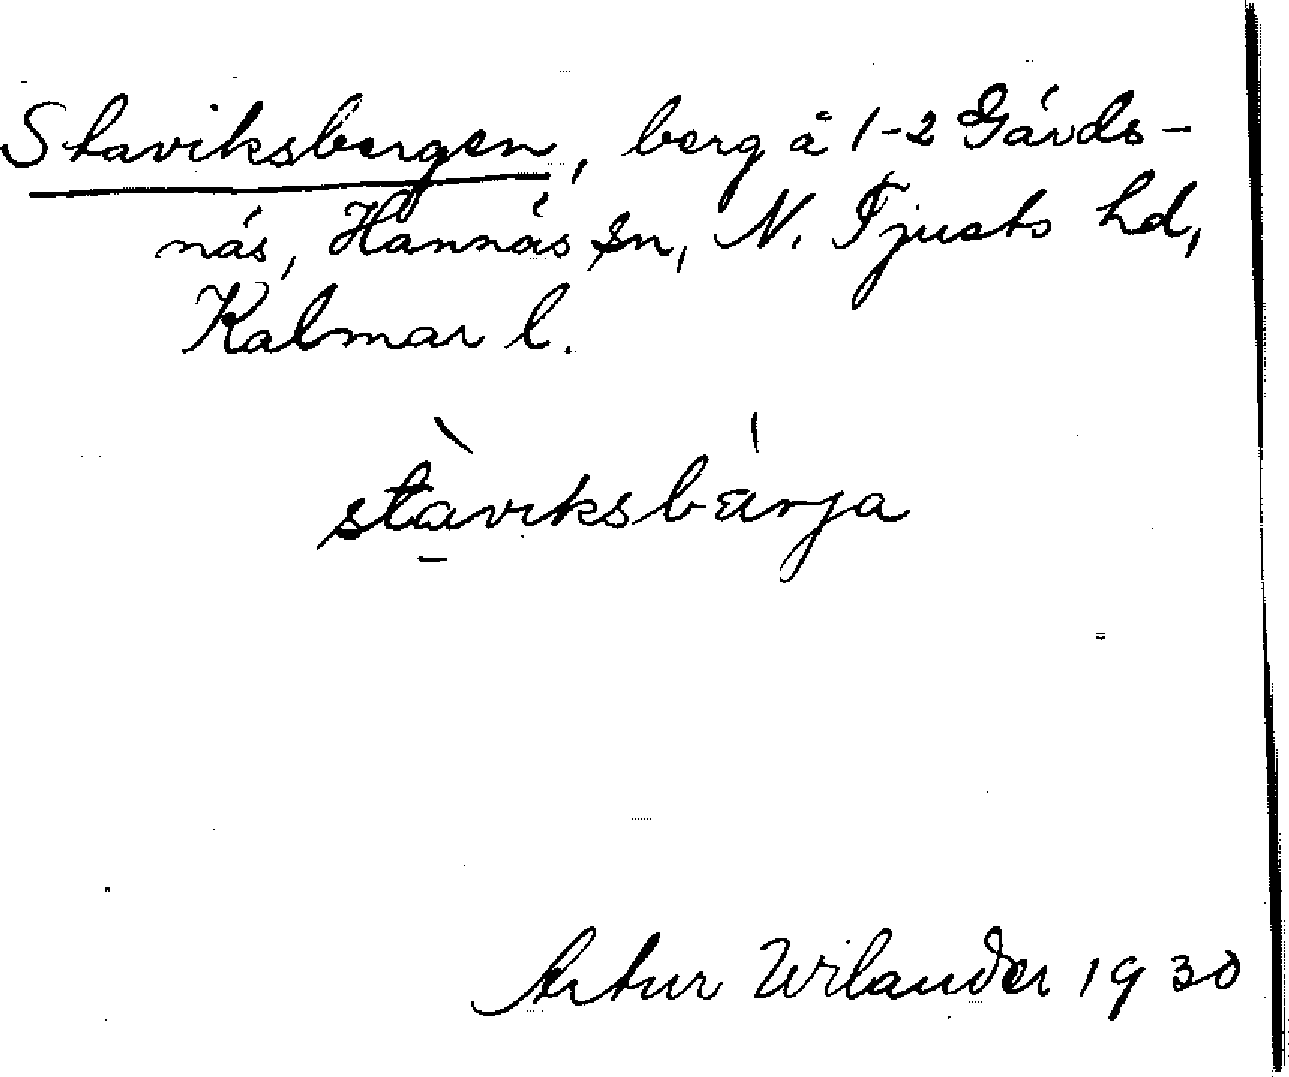 Staviksbergen, berg å 1-2 Gärds-
näs, Hannäs sn, N. Tjusts hd,
Kalmar l.
stàviksbärja
Artur Wilander 1930